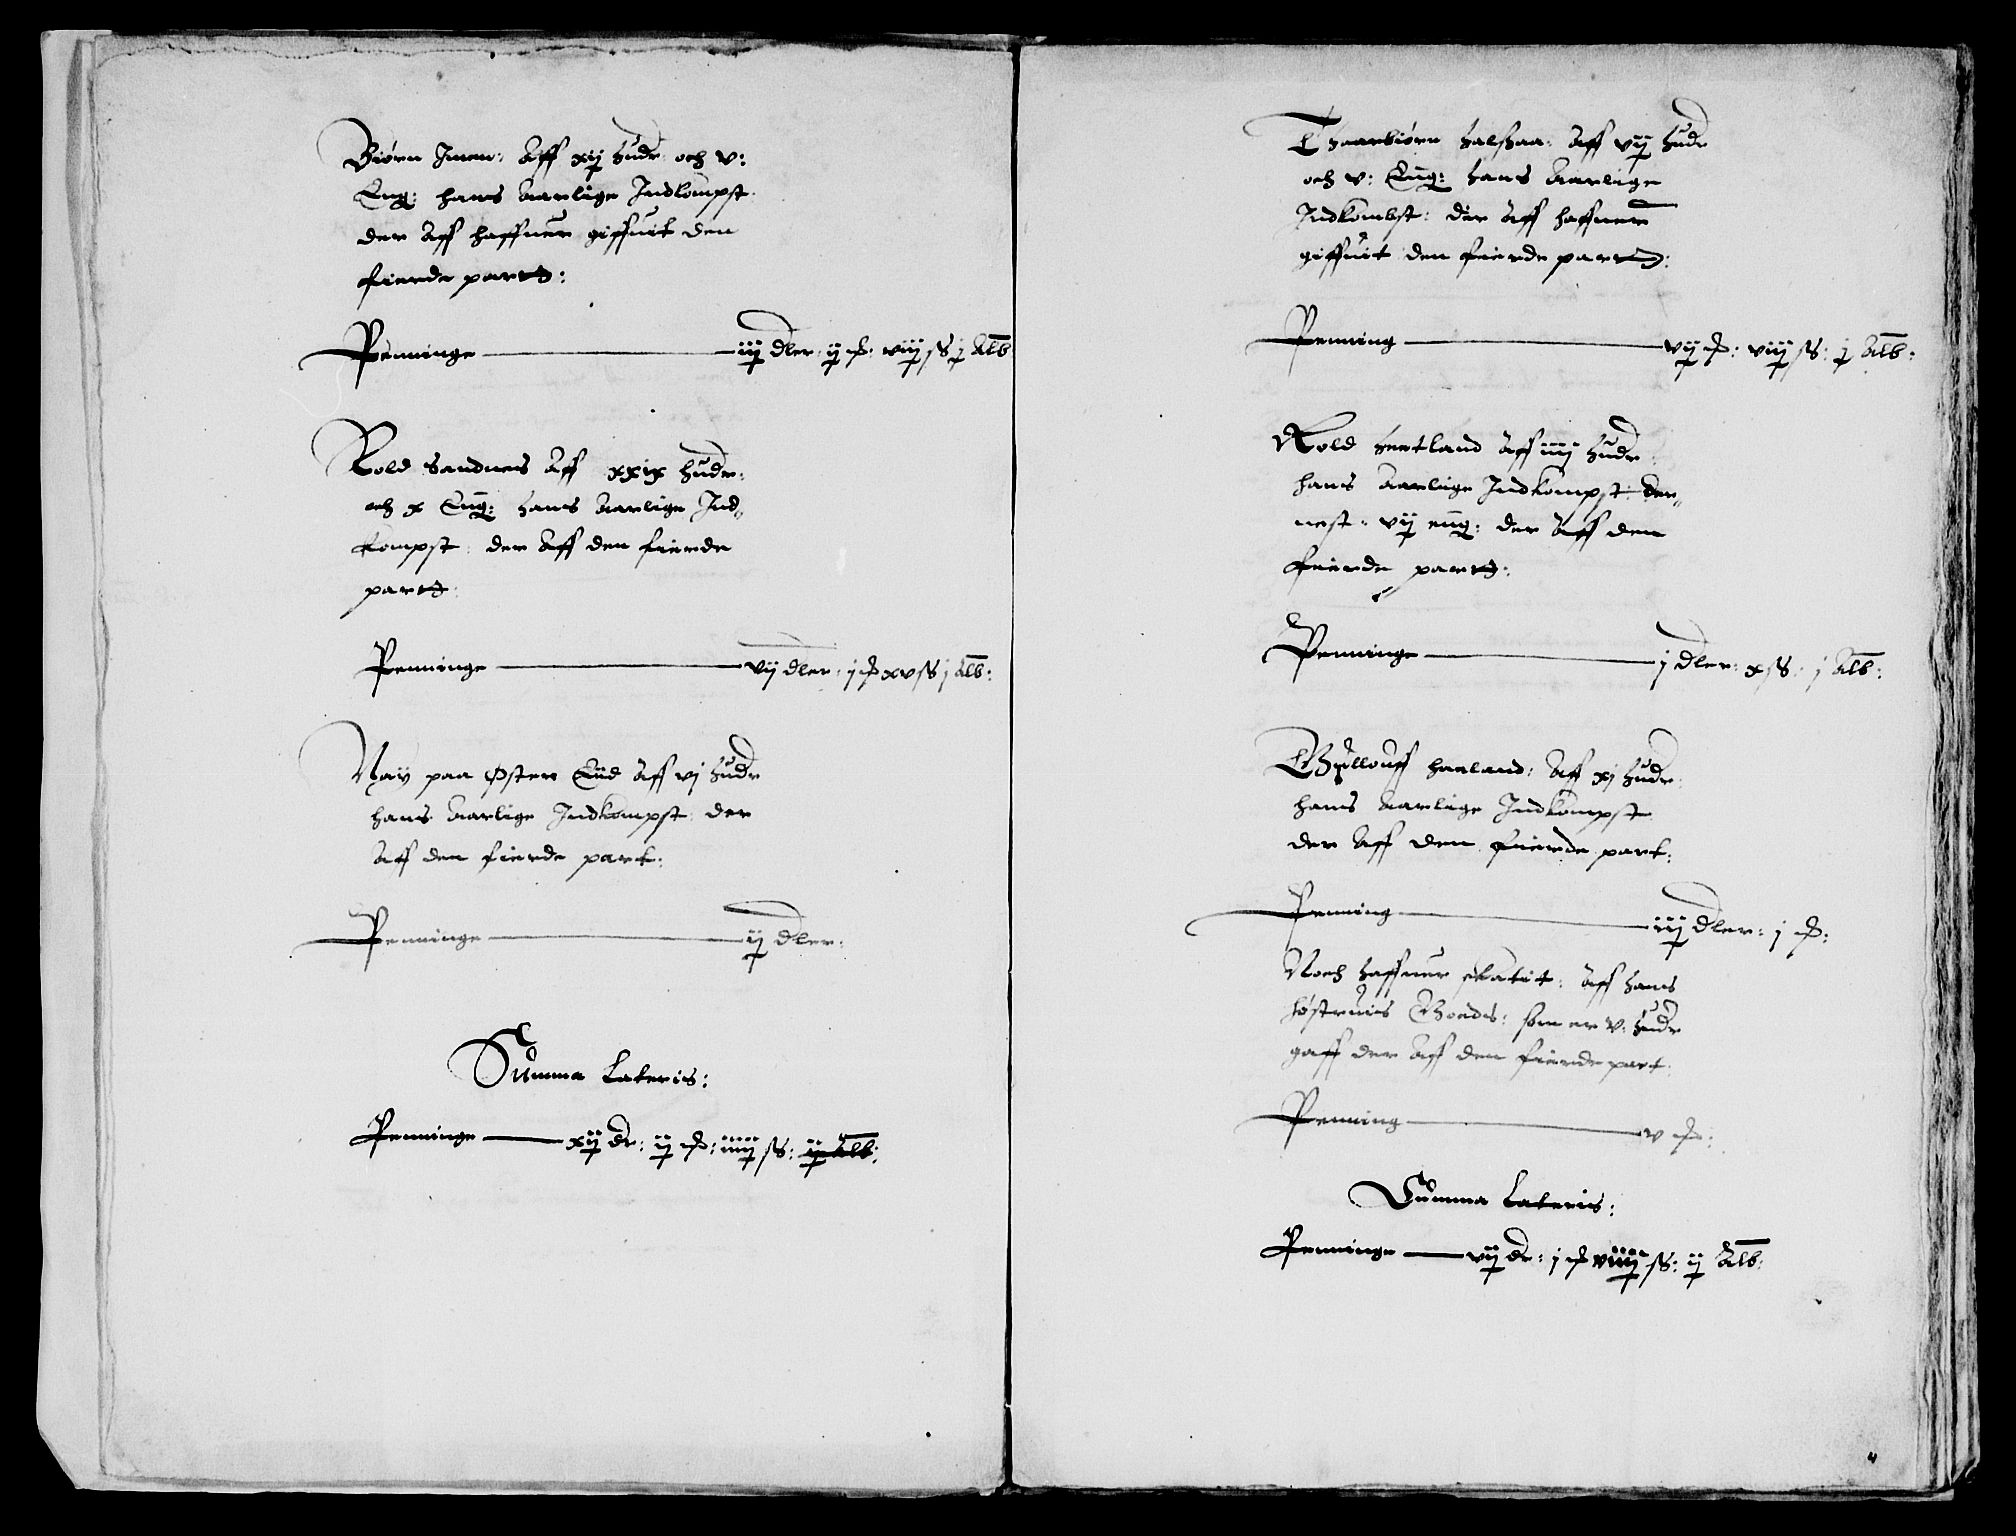 Biørn Jmen: Aff xij hudr och v:
Eng: hans Aarlige Indkompst
der Aff haffuer giffuit den
fierde partt:
Penninge — iij dler: ij : viij ss j Alb
Rold Sandnes Aff xxix hudr:
och x Eng: hans Aarlige Ind„
kompst: der Aff den fierde
partt:
Penninge — vij dler: j xv ss j Alb:
Nay paa Øster Eiid Aff vj hudr
hans Aarlige Indkompst der
Aff den fierde part:
Penninge — ij dler:
Summa Lateris:
Penninge — xij dr: ij : iiiij ss: ij Alb:
Thaarbiørn Aff vij hudr
och v: Eng: hans Aarlige
Indkombst: der Aff haffuer
giffuit den fierde partt:
Penning — vij : viij ss: j Alb:
Rold Aff iiij hudr
hans Aarlige Indkompst: der„
nest: vij eng: der Aff den
fierde partt:
Penninge — j dler: x ss: j Alb:
Gullouff haaland: Aff xj hudr
hans Aarlige Indkompst
der Aff den fierde part:
Penning — iij dler: j :
Noch haffuer skatit: Aff hans
høstruis Goeds: som er v: hudr
gaff der Aff den fierde part:
Penning — v :
Summa Lateris:
Penninge — vij dr: j viiij ss: ij Alb: